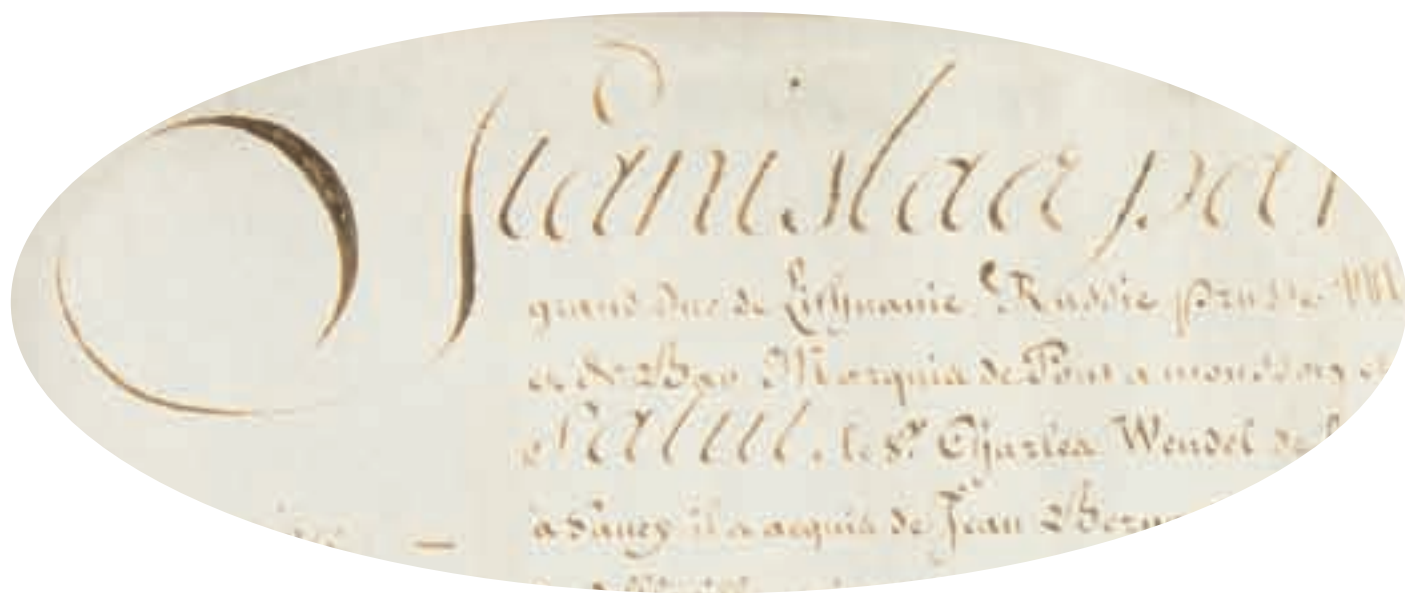 Stanislas par
grand duc de Lithuanie Russie Prusse
et de Bar Marquis de Pont a mousson et
Salut. le Sr. Charles Wendel de
à Nancy il a acquis de Jean